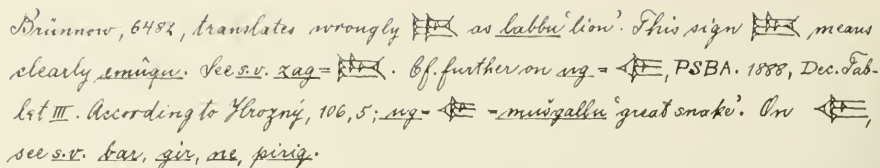 Brünnow, 6482, translates wrongly as labbu 'lion'. This sign means
clearly emûqu. See s.v. zag = . Cf. further on ug = , PSBA. 1888, Dec. Tab-
let III. According to Hrozný, 106, 5; ug = = mušgallu 'great snake'. On ,
see s.v. bar, gir, ne, pirig.